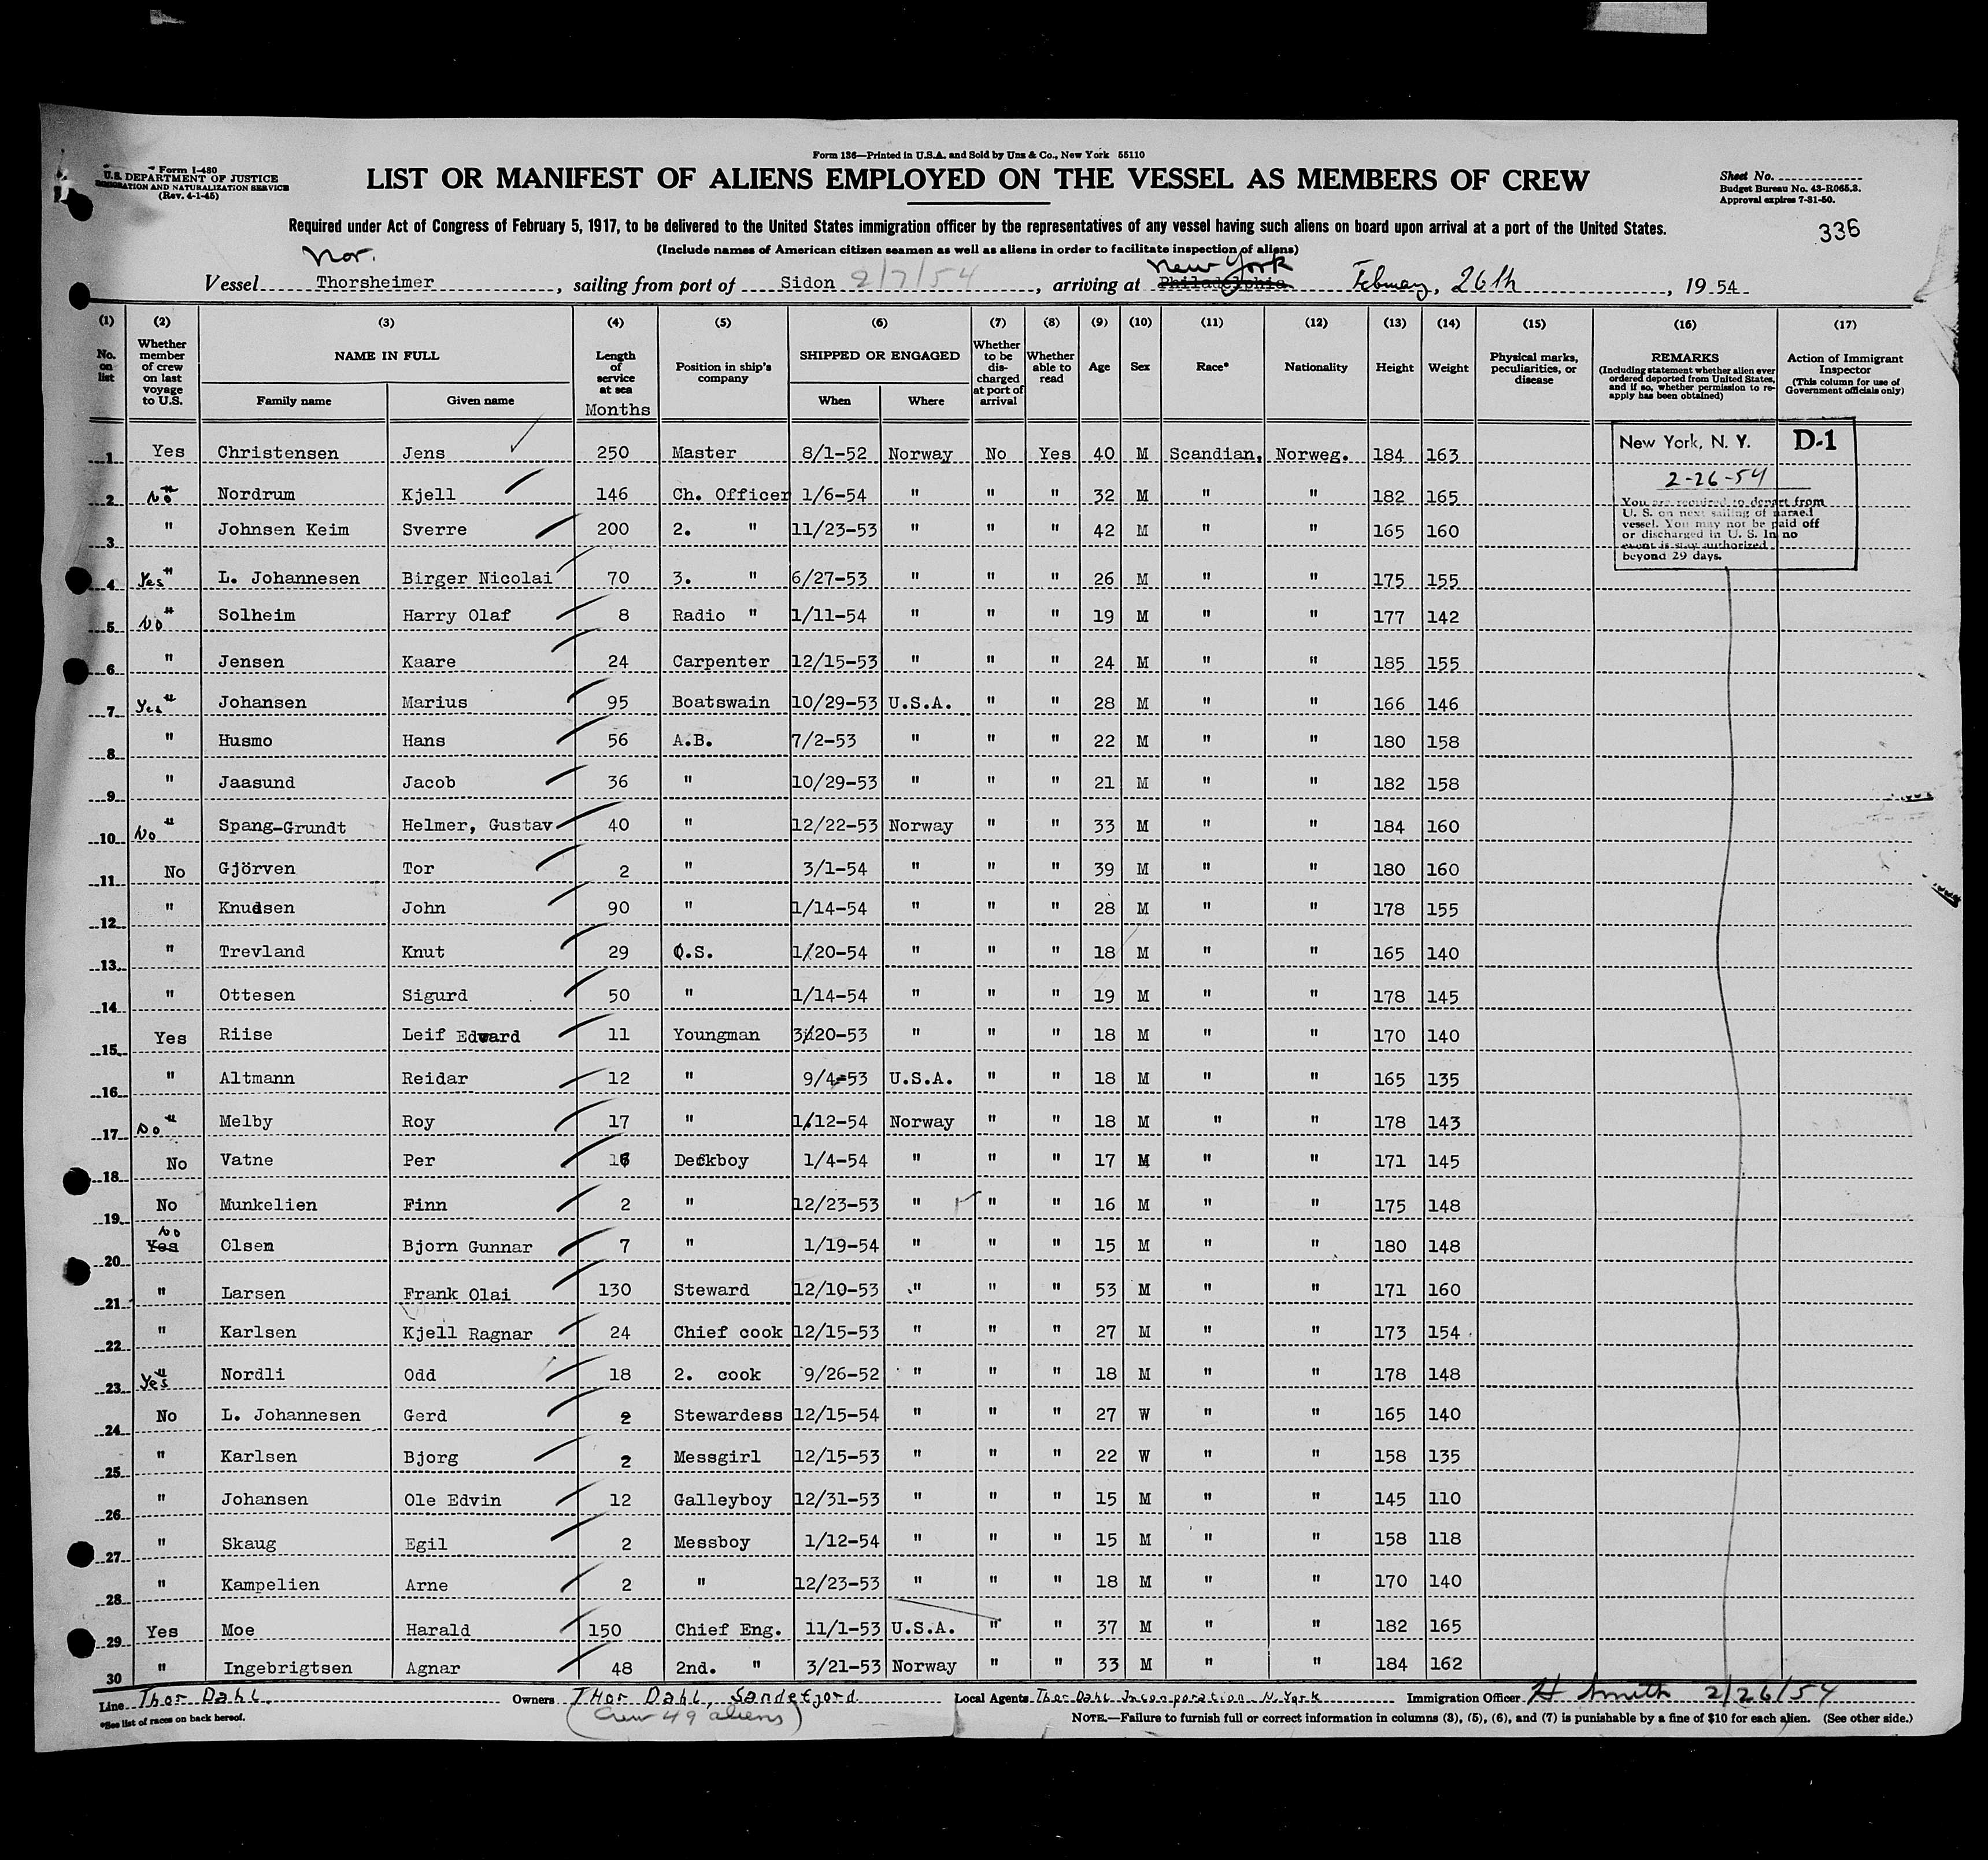 Form 136—Printed in U.S.A. and Sold by Unz & Co., New York 55110
Form I-480
U.S. DEPARTMENT OF JUSTICE
IMMIGRATION AND NATURALIZATION SERVICE
(Rev. 4-1-45)
LIST OR MANIFEST OF ALIENS EMPLOYED ON THE VESSEL AS MEMBERS OF CREW
Sheet No.
Budget Bureau No. 43-R065.3.
Approval expires 7-31-50.
336
Required under Act of Congress of February 5, 1917, to be delivered to the United States immigration officer by the representatives of any vessel having such aliens on board upon arrival at a port of the United States.
(Include names of American citizen seamen as well as aliens in order to facilitate inspection of aliens)
Nor. New York
Vessel Thorsheimer, sailing from port of Sidon 2/7/54, arriving at Philadelphia February, 26th, 19 54
(1) (2) (3) (4) (5) (6) (7) (8) (9) (10) (11) (12) (13) (14) (15) (16) (17)
No. on list
Whether member of crew on last voyage to U.S.
NAME IN FULL
Family name
Given name
Length of service at sea
Months
Position in ship's company
SHIPPED OR ENGAGED
When
Where
Whether to be discharged at port of arrival
Whether able to read
Age
Sex
Race*
Nationality
Height
Weight
Physical marks, peculiarities, or disease
REMARKS
(Including statement whether alien ever ordered deported from United States, and if so, whether permission to reapply has been obtained)
Action of Immigrant Inspector
(This column for use of Government officials only)
New York, N. Y. D-1
2-26-54
You are required to depart from
U. S. on next sailing of named
vessel. You may not be paid off
or discharged in U. S. In no
event is stay authorized
beyond 29 days.
1 Yes Christensen Jens 250 Master 8/1-52 Norway No Yes 40 M Scandian, Norweg. 184 163
2 " No Nordrum Kjell 146 Ch. Officer 1/6-54 " " " 32 M " " 182 165
3 " Johnsen Keim Sverre 200 2. " 11/23-53 " " " 42 M " " 165 160
4 Yes " L. Johannesen Birger Nicolai 70 3. " 6/27-53 " " " 26 M " " 175 155
5 No " Solheim Harry Olaf 8 Radio " 1/11-54 " " " 19 M " " 177 142
6 " Jensen Kaare 24 Carpenter 12/15-53 " " " 24 M " " 185 155
7 Yes " Johansen Marius 95 Boatswain 10/29-53 U.S.A. " " 28 M " " 166 146
8 " Husmo Hans 56 A.B. 7/2-53 " " " 22 M " " 180 158
9 " Jaasund Jacob 36 " 10/29-53 " " " 21 M " " 182 158
10 No " Spang-Grundt Helmer, Gustav 40 " 12/22-53 Norway " " 33 M " " 184 160
11 No Gjörven Tor 2 " 3/1-54 " " " 39 M " " 180 160
12 " Knudsen John 90 " 1/14-54 " " " 28 M " " 178 155
13 " Trevland Knut 29 O.S. 1/20-54 " " " 18 M " " 165 140
14 " Ottesen Sigurd 50 " 1/14-54 " " " 19 M " " 178 145
15 Yes Riise Leif Edward 11 Youngman 3/20-53 " " " 18 M " " 170 140
16 " Altmann Reidar 12 " 9/4-53 U.S.A. " " 18 M " " 165 135
17 No " Melby Roy 17 " 1/12-54 Norway " " 18 M " " 178 143
18 No Vatne Per Deckboy 1/4-54 " " " 17 M " " 171 145
19 No Munkelien Finn 2 " 12/23-53 " " " 16 M " " 175 148
20 No Yes Olsen Bjorn Gunnar 7 " 1/19-54 " " " 15 M " " 180 148
21 " Larsen Frank Olai 130 Steward 12/10-53 " " " 53 M " " 171 160
22 " Karlsen Kjell Ragnar 24 Chief cook 12/15-53 " " " 27 M " " 173 154
23 Yes " Nordli Odd 18 2. cook 9/26-52 " " " 18 M " " 178 148
24 No L. Johannesen Gerd 2 Stewardess 12/15-54 " " " 27 W " " 165 140
25 " Karlsen Bjorg 2 Messgirl 12/15-53 " " " 22 W " " 158 135
26 " Johansen Ole Edvin 12 Galleyboy 12/31-53 " " " 15 M " " 145 110
27 " Skaug Egil 2 Messboy 1/12-54 " " " 15 M " " 158 118
28 " Kampelien Arne 2 " 12/23-53 " " " 18 M " " 170 140
29 Yes Moe Harald 150 Chief Eng. 11/1-53 U.S.A. " " 37 M " " 182 165
30 " Ingebrigtsen Agnar 48 2nd. " 3/21-53 Norway " " 33 M " " 184 162
Line Thor Dahl. Owners THor Dahl, Sandefjord Local Agents Thor Dahl Incorporation N. York Immigration Officer H Smith 2/26/54
(Crew 49 aliens)
*See list of races on back hereof.
NOTE.—Failure to furnish full or correct information in columns (3), (5), (6), and (7) is punishable by a fine of $10 for each alien. (See other side.)